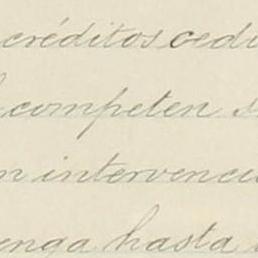 créditos cedi
competen s
n intervenci
enga hasta